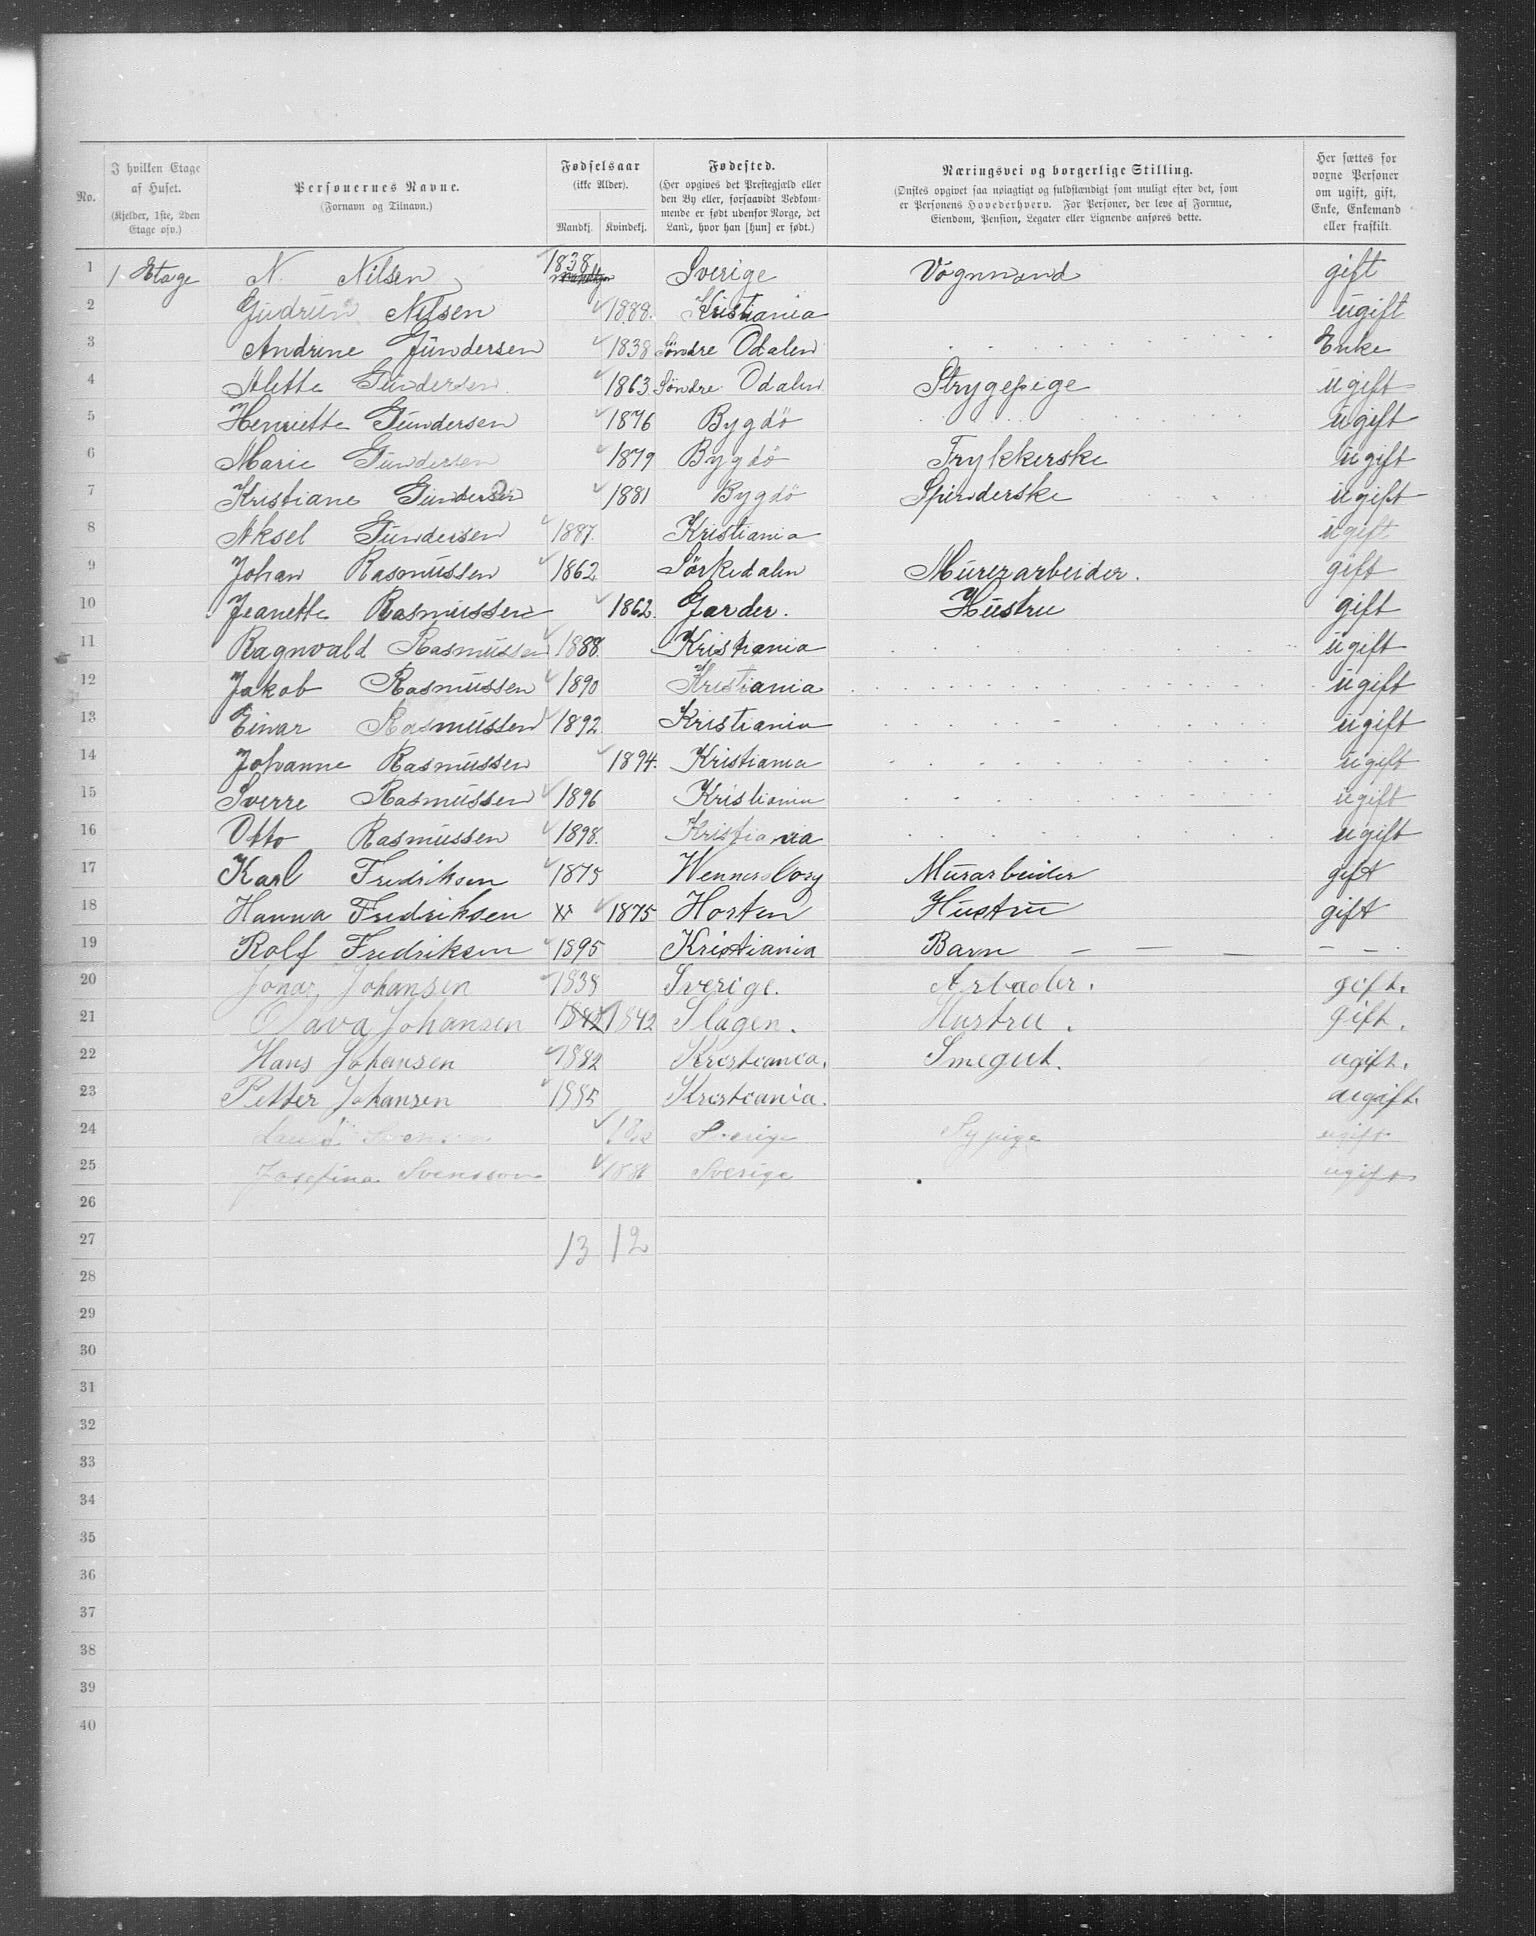 No.
I hvilken Etage af Huset.
(Kjelder, 1ste, 2den Etage osv.)
Personernes Navne.
(Fornavn og Tilnavn.)
Fødselsaar
(ikke Alder).
Mandkj. Kvindekj.
Fødested.
(Her opgives det Prestegjæld eller den By eller, forsaavidt Vedkommende er født udenfor Norge, det Land, hvor han [hun] er født.)
Næringsvei og borgerlige Stilling.
(Ønskes opgivet saa nøiagtigt og fuldstændigt som muligt efter det, som er Personens Hovederhverv. For Personer, der leve af Formue, Eiendom, Pension, Legater eller Lignende anføres dette.
Her sættes for voxne Personer om ugift, gift, Enke, Enkemand eller fraskilt.
1 1 Etage N. Nilsen 1838 Sverige Vögnmand gift
2 Gudrun Nilsen 1888. Kristiania ugift
3 Andrine Gundersen 1838 Söndre Odalen Enke
4 Alette Gundersen 1863 Söndre Odalen Strygepige ugift
5 Henriette Gundersen 1876 Bygdö ugift
6 Marie Gundersen 1879 Bygdö Trykkerske ugift
7 Kristiane Gundersen 1881 Bygdö Spinderske ugift
8 Aksel Gundersen 1887. Kristiania ugift
9 Johan Rasmussen 1862 Sörkedalen Murerarbeider. gift
10 Jeanette Rasmussen 1862. Garder. Hustru gift
11 Ragnvald Rasmussen 1888 Kristiania ugift
12 Jakob Rasmussen 1890 Kristiania ugift
13 Einar Rasmussen 1892 Kristiania ugift
14 Johanne Rasmussen 1894. Kristiania ugift
15 Sverre Rasmussen 1896 Kristiania ugift
16 Otto Rasmussen 1898. Kristiania ugift
17 Karl Fredriksen 1875 Wennersborg Murarbeider gift
18 Hanna Fredriksen 1875 Horten Hustru gift
19 Rolf Fredriksen 1895 Kristiania Barn — — — — —
20 Jonas Johansen 1838 Sverige. Arbader. gift.
21 Olava Johansen 1842 1842 Slagen. Hustru. gift.
22 Hans Johansen 1882 Kristiania. Smegut. ugift.
23 Petter Johansen 1885 Kristiania. augift.
24 Sverige Sypige ugift
25 Josefina Svensson 1886 Sverige ugift
26
27 13 12
28
29
30
31
32
33
34
35
36
37
38
39
40